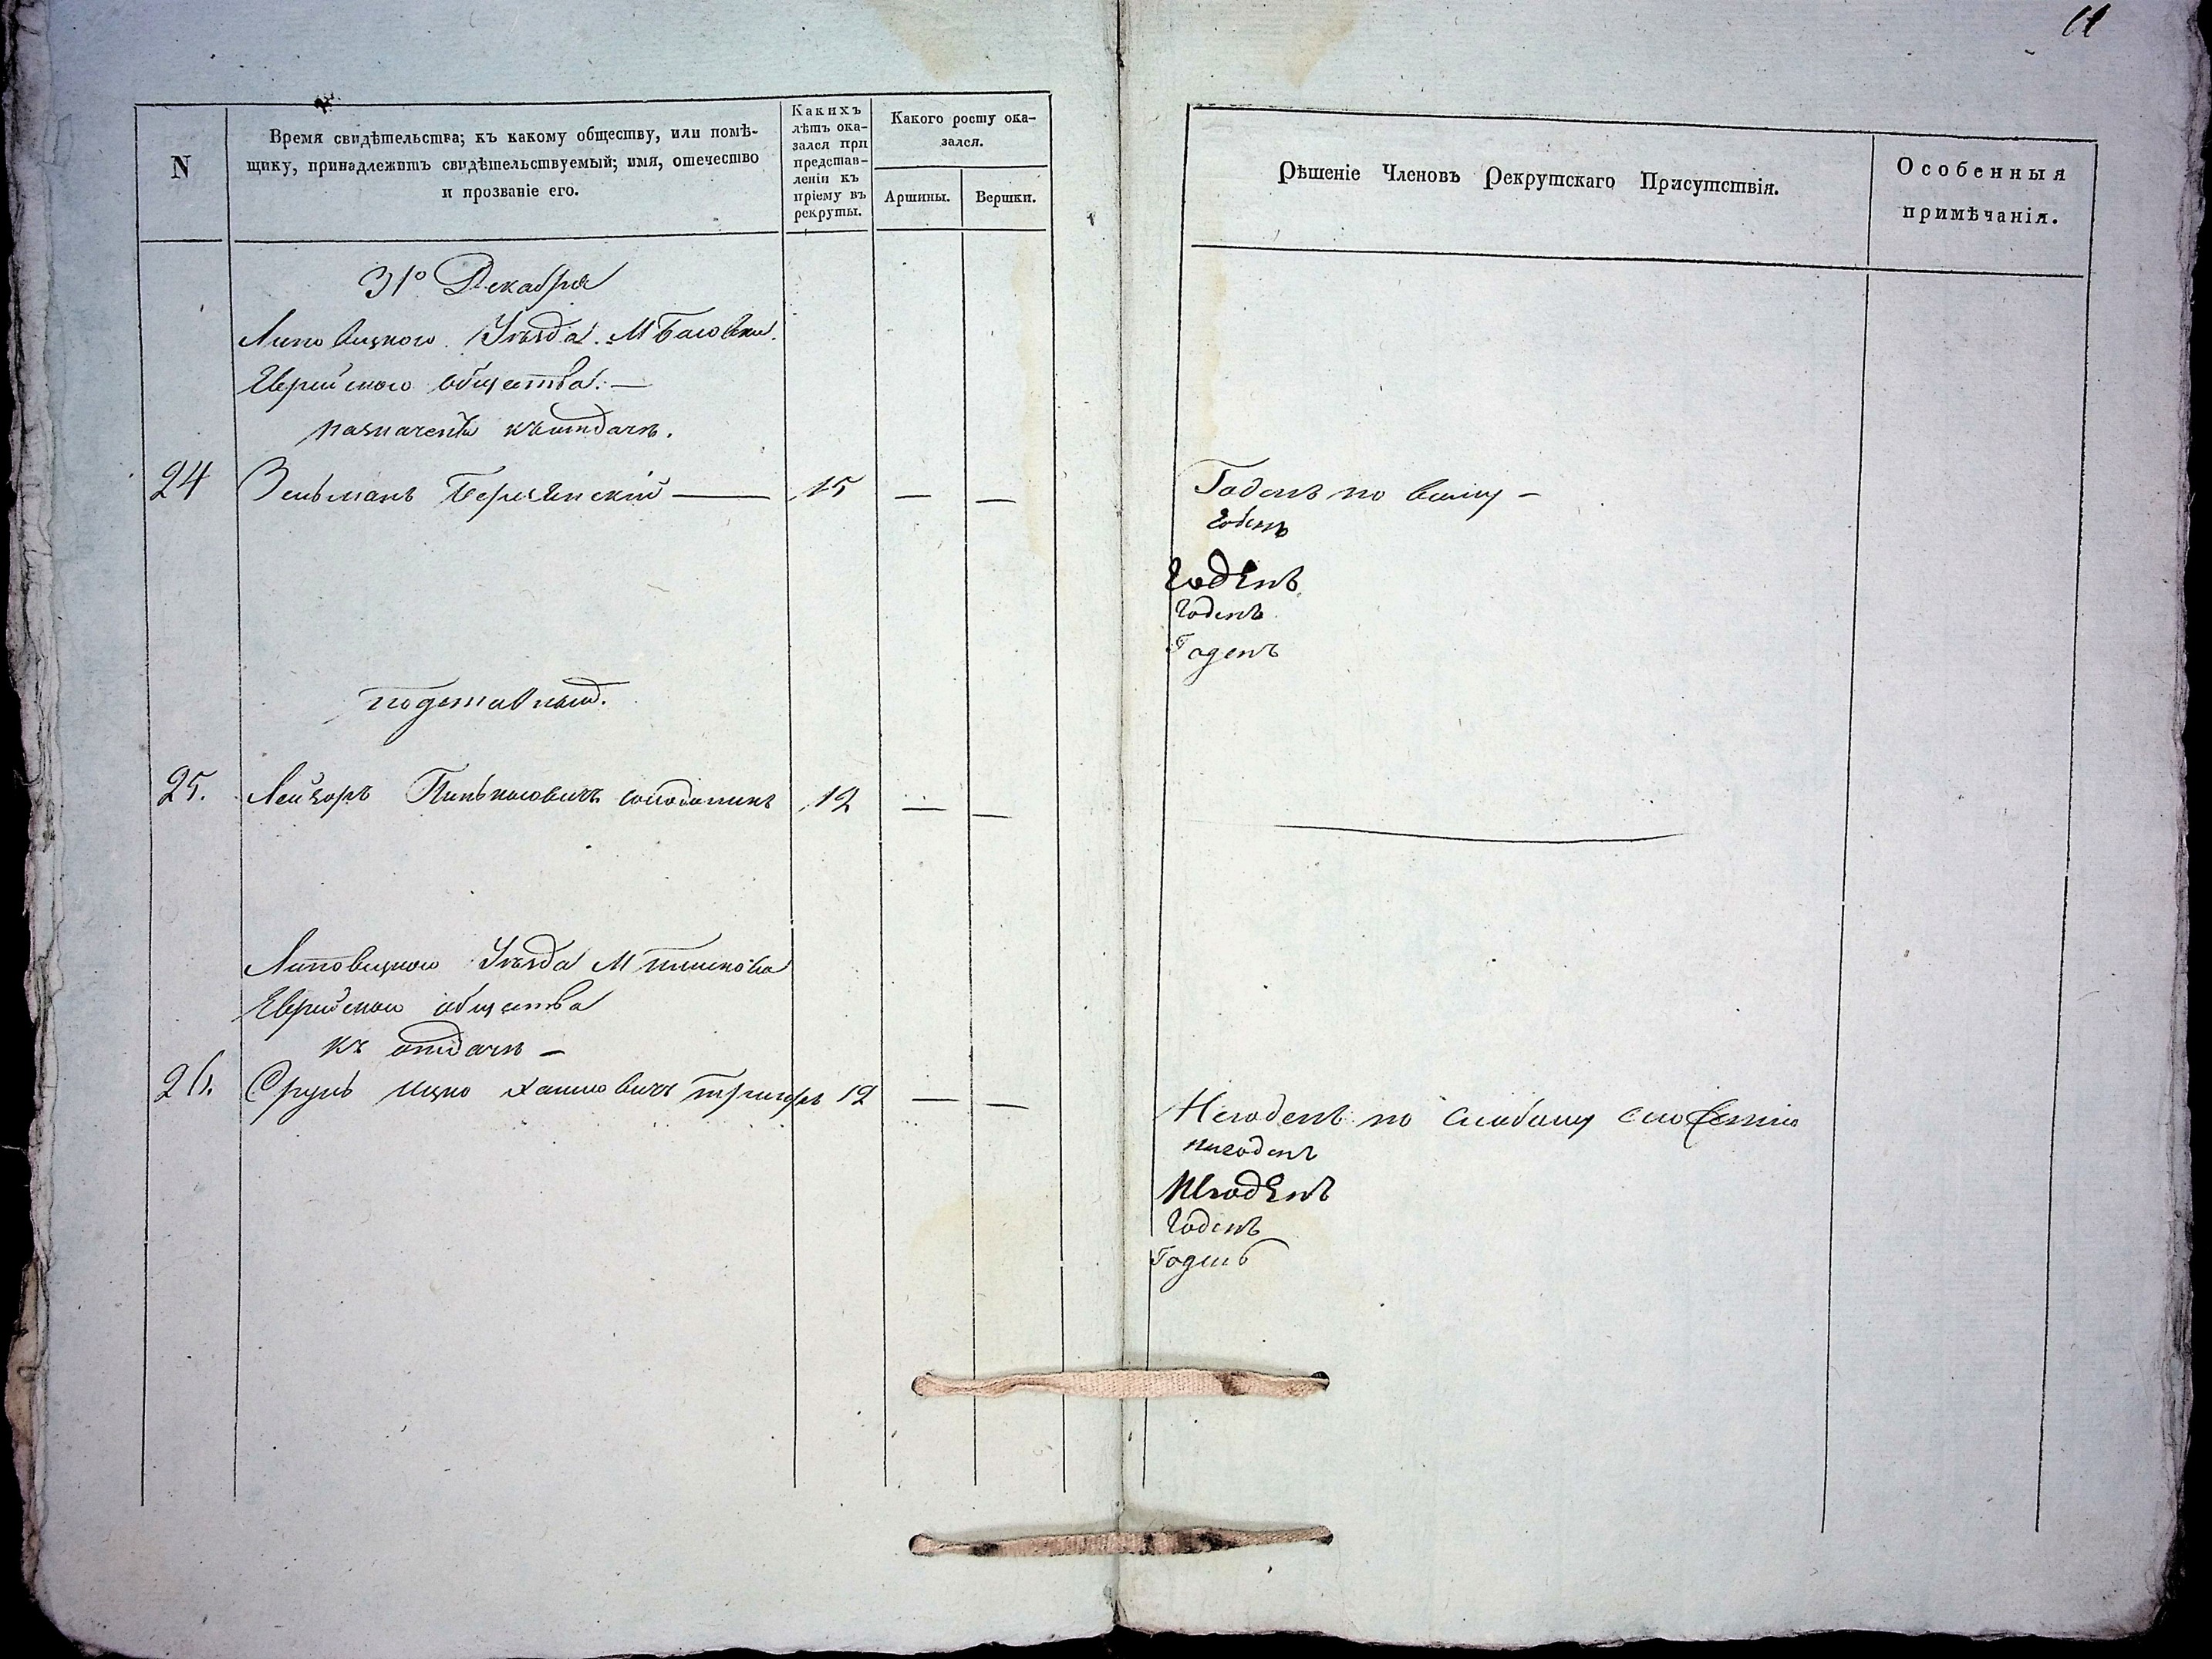 11
N
Время свидѣтельства; къ какому обществу, или помѣ-
щику, принадлежитъ свидѣтельствуемый; имя, отечество
и прозваніе его.
Какихъ
лѣтъ ока-
зался при
представ-
леніи къ
пріему въ
рекруты.
Какого росту ока-
зался.
Аршины.
Вершки.
Рѣшеніе Членовъ Рекрутскаго Присутствія.
Особенныя
примѣчанія.
31º Декабря
Липовецкого Уѣзда. М
Еврейского общества. —
назначенъ къ отдачѣ.
24 Зельманъ — 15 — — Годенъ по всему —
Годенъ
Годенъ
Годенъ
Годенъ
подставный.
25. Лейзоръ 12 — —
Липовецкого Уѣзда М
Еврейского общества
къ отдачѣ —
26. Сруль Ицко 12 — — Негоденъ по слабому сложенію
Негоденъ
Негоденъ
Годенъ
Годенъ